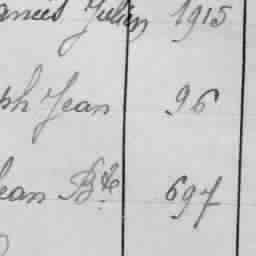 Julien 1915
ph Jean 96
ean Bte 697